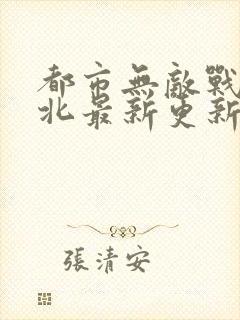 都市無敵戰
北最新更新
張清安